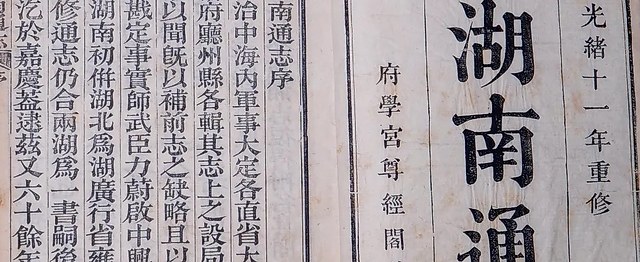 光緒十一年重修
湖南通
府學宮尊經閣
南通志序
治中海內軍事大定各直省大
府廳州縣各輯其志上之設局
以聞旣以補前志之缺略且以
勘定事實師武臣力蔚啟中興
湖南初併湖北爲湖廣行省雍
修通志仍合兩湖爲一書嗣後
迄於嘉慶蓋逮茲又六十餘年